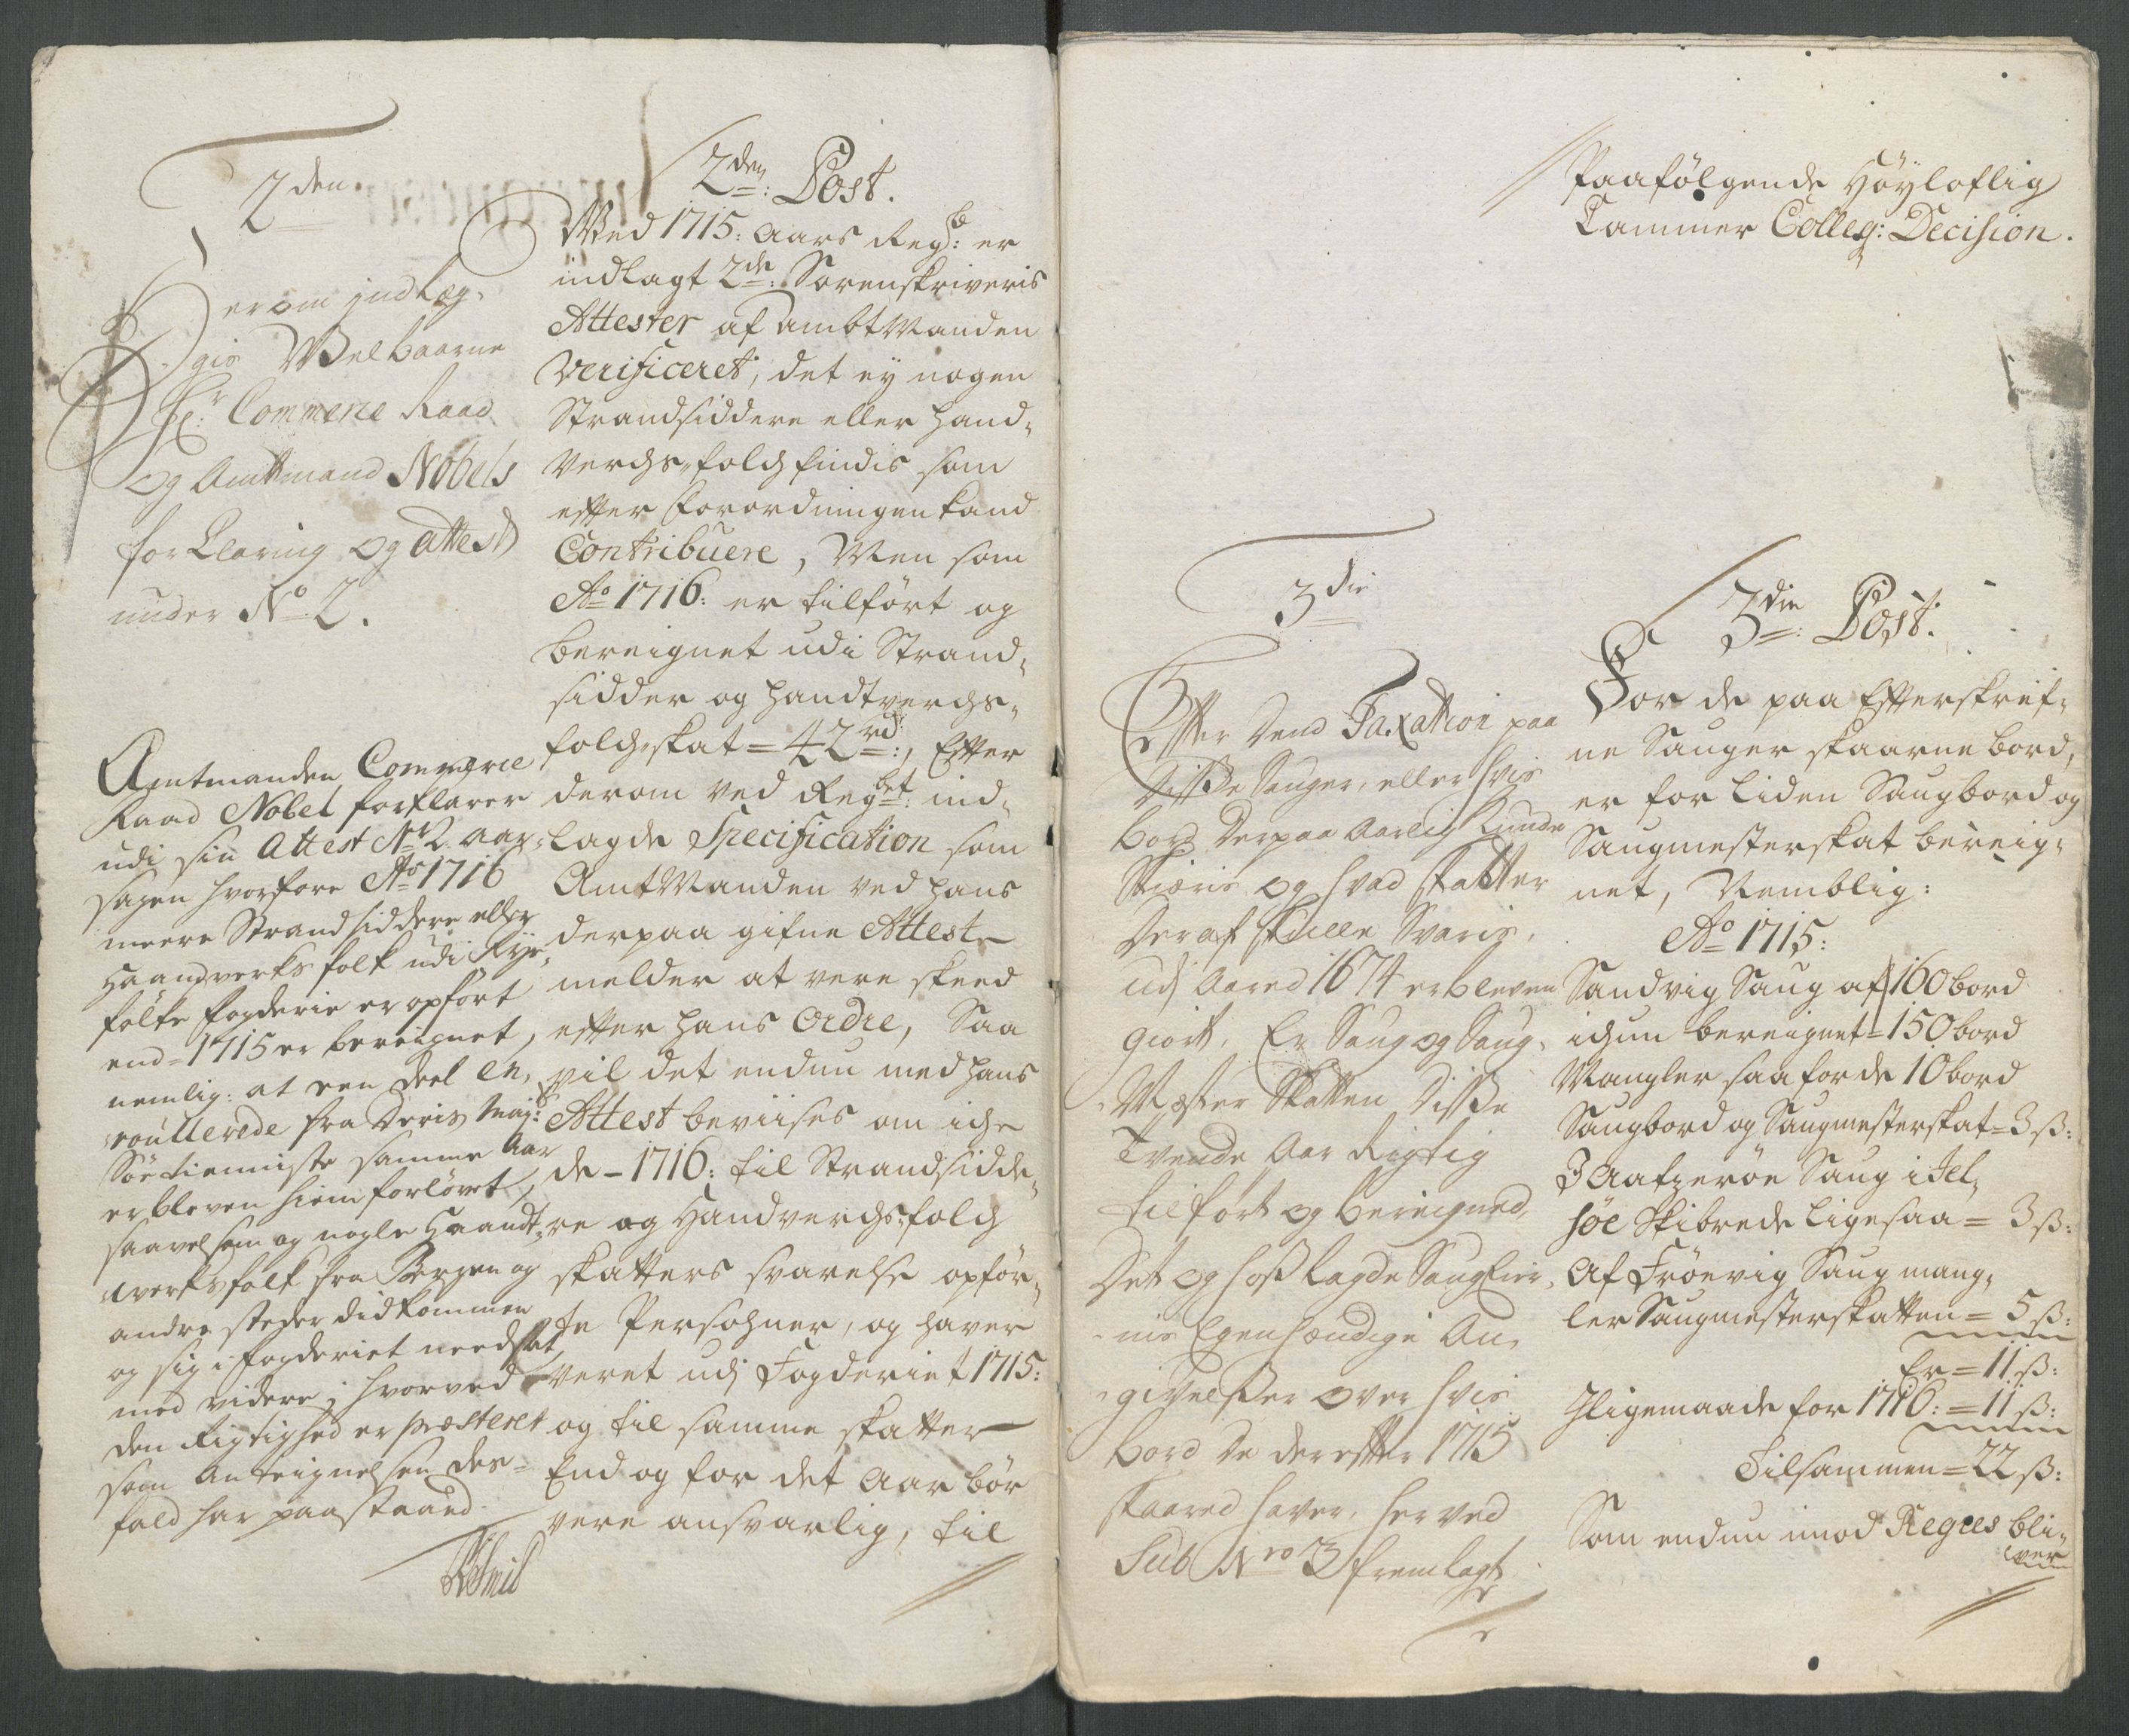 2den
Herom indleg¬
gis Welbaarne
Hr: Commerce Raad
og Amtmand Nobels
forklaring og attest
under No 2.
Amtmanden Commerce
Raad Nobel forklarer
udi sin Attest No 2. aar¬
sagen hvorfore Ao 1716
meere Strandsiddere eller
Haandverks folk udi Rye¬
fölke fogderie er opfört
end = 1715 er bereignet,
nemlig: at een deel en¬
roullerede fra Deris Maj:
Söe tienniste samme Aar
er bleven hiemforlövet,
saavelsom og nogle Haandt¬
werksfolk fra Bergen og
andre steder did kommen
og sig i fogderiet needsat
med videre; hvorved
den Rigtighed er præsteret
som Anteignelsen des¬
fald har paastaaed.
2den: Post.
Med 1715: aars Regsb: er
indlagt 2de: Sorenskriveris
Attester af AmbtManden
Verificeret, det ey nogen
Strandsiddere eller hand¬
verchs folch findis som
efter forordningen kand
Contribuere, Men som
Ao 1716: er tilfört og
bereignet udi Strand¬
sidder og handtverchs¬
folch skat = 42 rd:, Efter
derom ved Regbet: ind¬
lagde Specification som
AmtManden ved hans
derpaa gifne Attest
melder at vere skeed
efter hans Ordre, Saa
vil det endnu med hans
Attest beviises om iche
de - 1716: til Strandsidde¬
re og Handverchsfolch
skatters svarelse opför¬
te Persohner, og haver
veret udj Fogderiet 1715:
og til samme skatter
End og for det Aar bör
vere ansvarlig, til
Paafölgende Höyloflig
Cammer Colleg: Decision.
3die
Efter dend Taxation paa
disse Sauger, eller hvis
bord derpaa aarlig kunde
Skæris og hvad skatter
deraf skulle Svaris,
udj Aared 1674 er bleven
giort, Er Saug og Saug¬
Mester Skatten disse
Tvende Aar Rigtig
tilfört og bereigned,
Det og hoß lagde Saug Eier¬
nis Egenhændige An¬
givelßer over hvis
bord de derefter 1715
skaared haver, herved
Sub Nro 3 fremlagt
3die: Post.
For de paa Efterskref¬
ne Sauger skaarne bord,
er for liden Saugbord og
Saugmesterskat bereig¬
net, Nemblig:
Ao 1715:
Sandvig Saug af 160 bord
ichun bereignet = 150 bord
Mangler saa for de 10 bord
Saugbord og Saugmesterskat = 3 ß:
Saug i Jel¬
söe Skibrede ligesaa = 3 ß:
Af Fröevig Saug mang¬
ler Saugmesterskatten = 5 ß:
Er = 11 ß:
Jligemaade for 1716: = 11 ß:
Tilsammen = 22 ß:
Som endnu imod Regles bli¬
ver